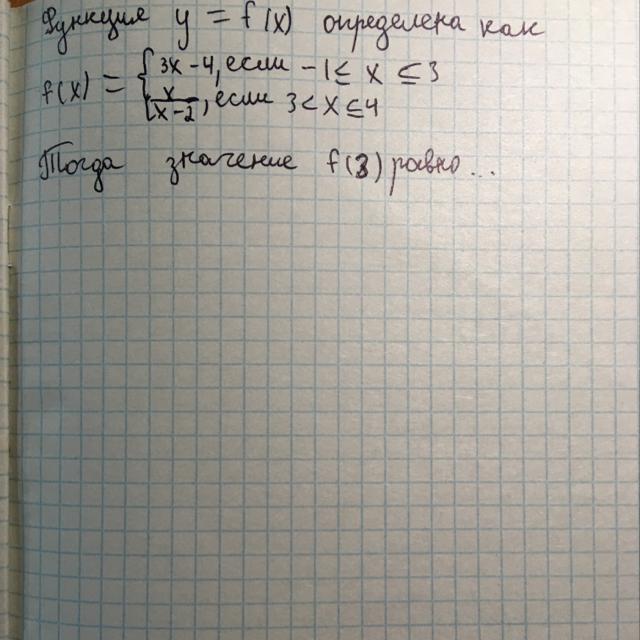 Функция y = f(x) определена как
f(x) = { 3x - 4, если -1 ≤ x ≤ 3
x/(x-2), если 3 < x ≤ 4
Тогда значение f(3) равно...